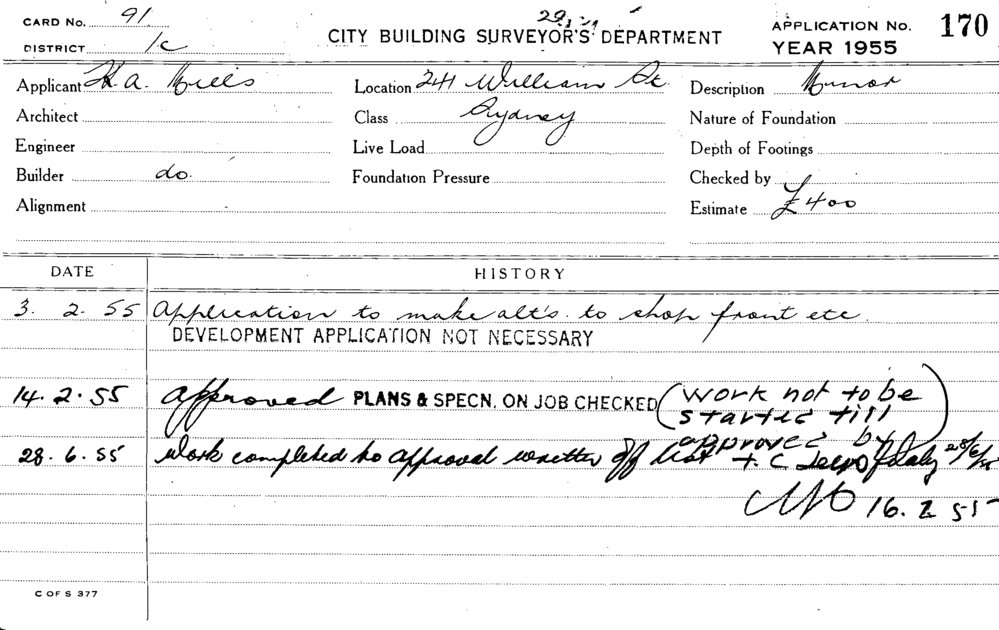 CARD No. 91
DISTRICT 1/c
CITY BUILDING SURVEYOR'S DEPARTMENT
APPLICATION No. 170
YEAR 1955
Applicant H.A. Mills
Location 241 William St.
Description Minor
Architect
Class Sydney
Nature of Foundation
Engineer
Live Load
Depth of Footings
Builder do.
Foundation Pressure
Checked by
Alignment
Estimate £400
DATE HISTORY
3. 2. 55 Application to make alt's. to shop front etc.
DEVELOPMENT APPLICATION NOT NECESSARY
14. 2. 55 approved PLANS & SPECN. ON JOB CHECKED (work not to be
started till
approved by
T.C Dept)
28. 6. 55 Work completed to approval written off list 28/6/55
16. 2 55
C OF S 377